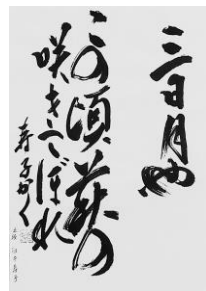 三日月や
この頃萩の
咲きこぼれ
寿子かく